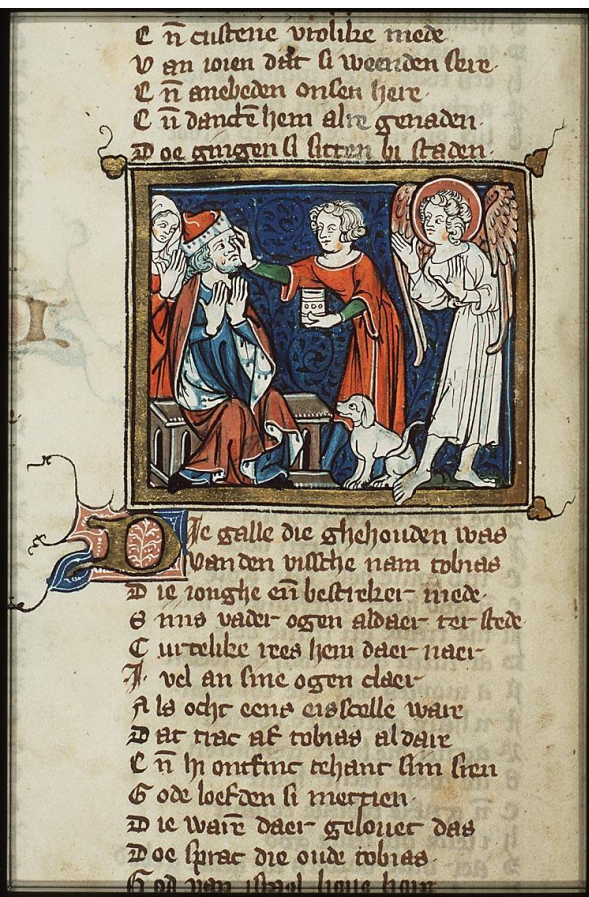 E n̄ custene vrolike mede
V an ioien dat si weenden sere·
E n̄ anebeden onsen here·
E n̄ dancte̅ hem alre genaden·
D oe gingen si sitten bi staden·
D ie galle die ghehouden was
V anden vissche nam tobias
D ie ionghe en̄ bestreker mede·
S inis vader ogen aldaer ter stede
C urtelike rees hem daer naer
I· vel an sine ogen claer
A ls ocht eens eis scelle ware
D at trac af tobias aldare
E n̄ hi ontfinc tehant sim sien
G ode loefden si mettien·
D ie ware̅ daer gelouet das
D oe sprac die oude tobias·
G od van israel lieue here